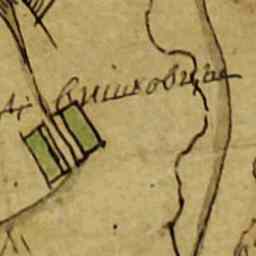 д. Вишковцы